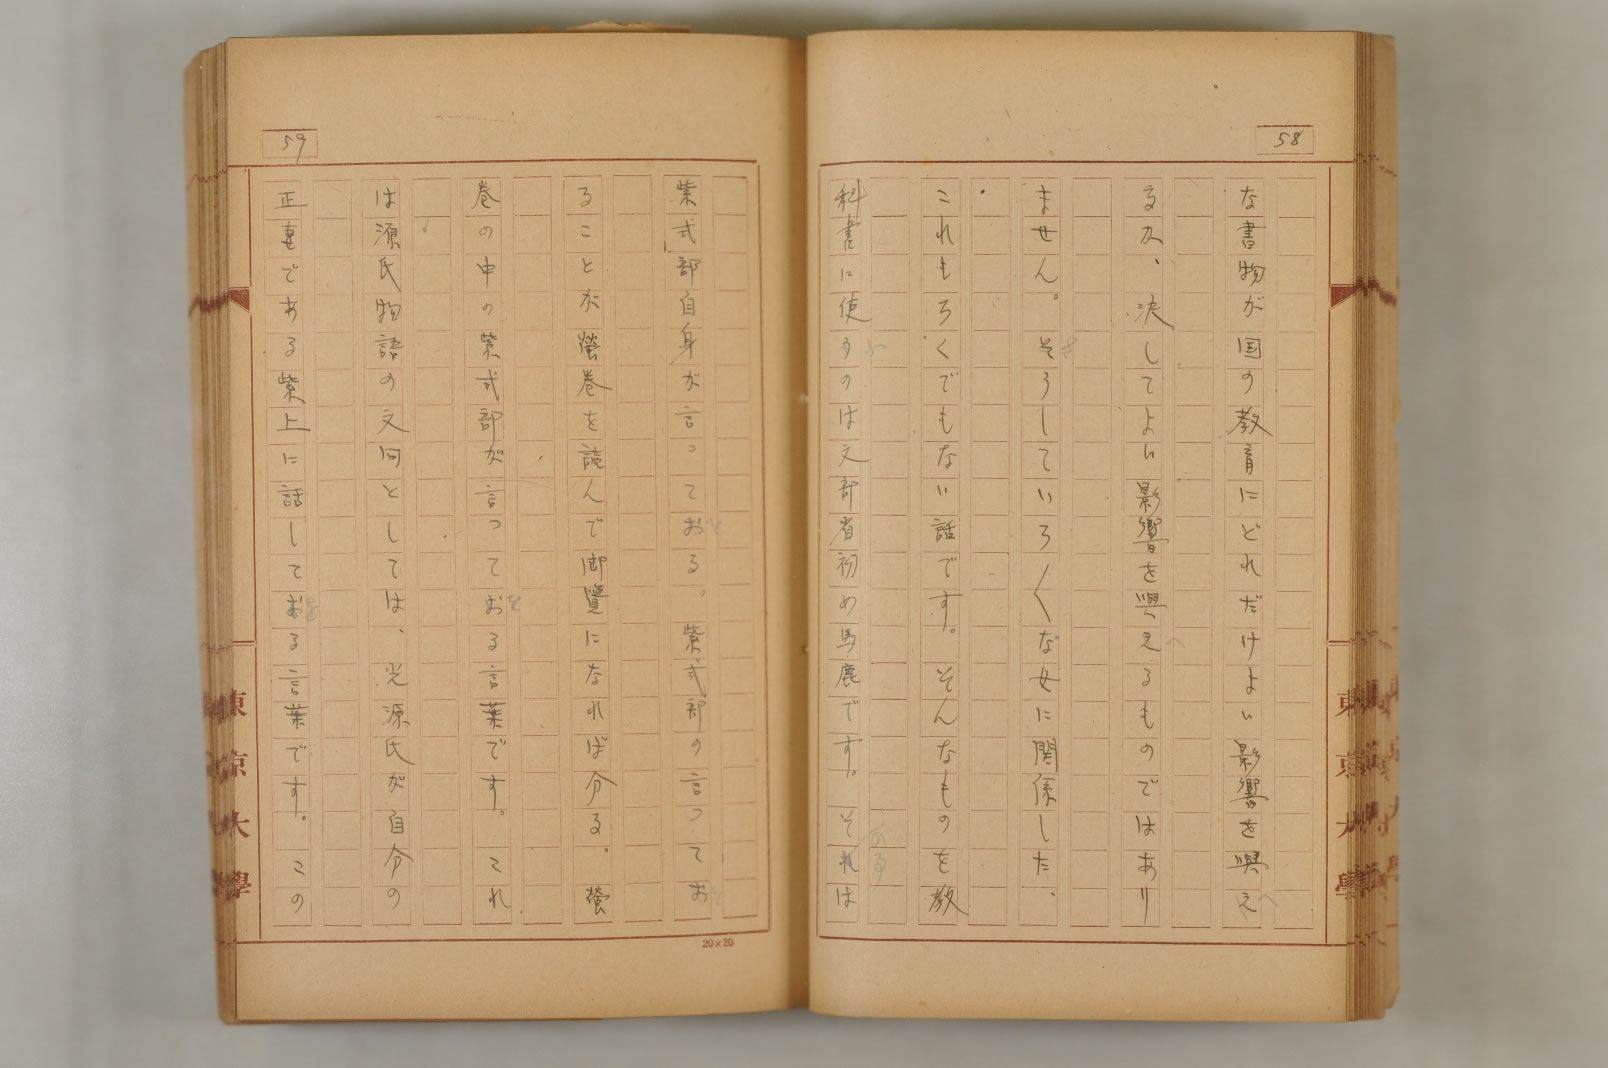 58
な書物が国の教育にどれだけよい影響を與え
へ
るか、決してよい影響を與えるものではあり
へ
ません。そうしていろ〱な女に関係した、
さ
これもろくでもない話です。そんなものを教
科書に使うのは文部省初め馬鹿です。それは
ふ
のる
59
紫式部自身が言っておる。紫式部の言ってお
を
を
ることが螢巻を読んで御覽になれば分る。螢
巻の中の紫式部が言っておる言葉です。これ
を
は源氏物語の文句としては、光源氏が自分の
正妻である紫上に話しておる言葉です。この
を
20×20
東京大學
東京大學